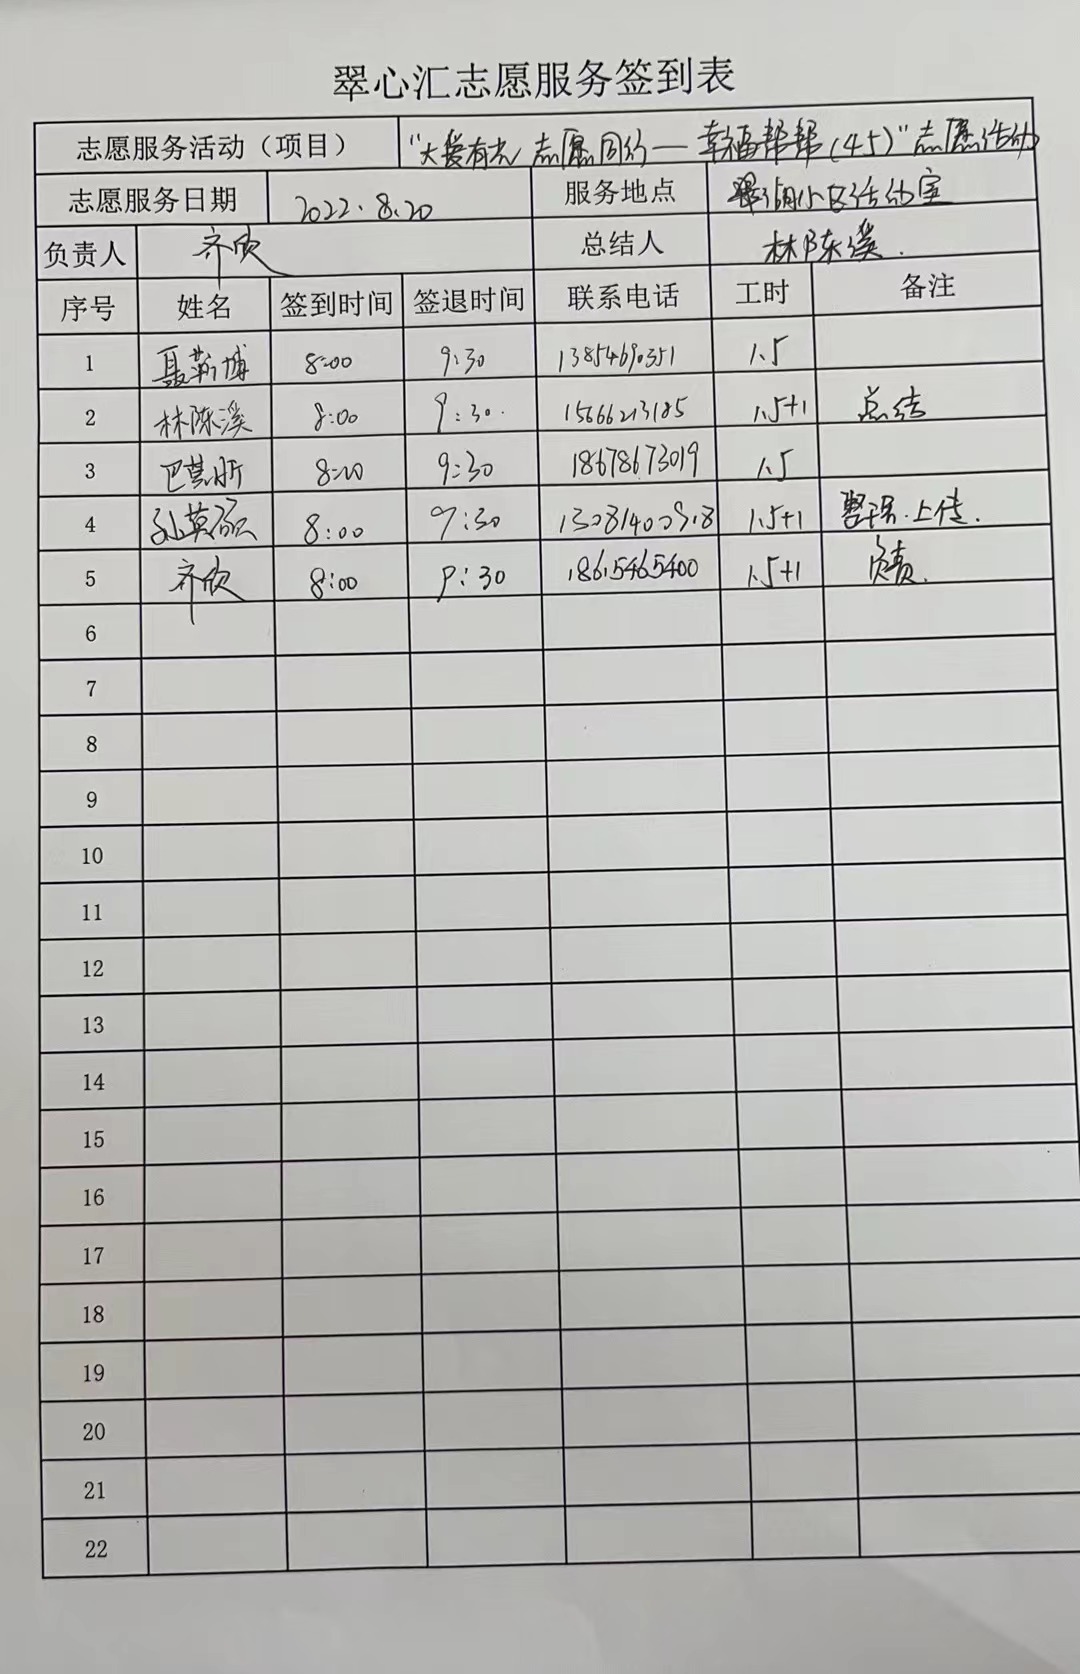 翠心汇志愿服务签到表
志愿服务活动（项目） "大爱有光 志愿同行—幸福帮帮(45)"志愿活动
志愿服务日期 2022.8.20 服务地点 翠湖小区活动室
负责人 齐欣 总结人 林陈溪.
序号 姓名 签到时间 签退时间 联系电话 工时 备注
1 聂新博 8:00 9:30 1.5
2 林陈溪 8:00 9:30. 15666213185 1.5+1 总结
3 8:00 9:30 18678673019 1.5
4 8:00 9:30 1.5+1 上传.
5 齐欣 8:00 9:30 18615465400 1.5+1 负责.
6
7
8
9
10
11
12
13
14
15
16
17
18
19
20
21
22